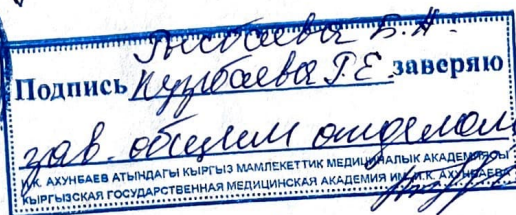 Подпись Кузбаева Г.Е. заверяю
зав. общим отделом
И.К. АХУНБАЕВ АТЫНДАГЫ КЫРГЫЗ МАМЛЕКЕТТИК МЕДИЦИНАЛЫК АКАДЕМИЯСЫ
КЫРГЫЗСКАЯ ГОСУДАРСТВЕННАЯ МЕДИЦИНСКАЯ АКАДЕМИЯ ИМ. И.К. АХУНБАЕВА